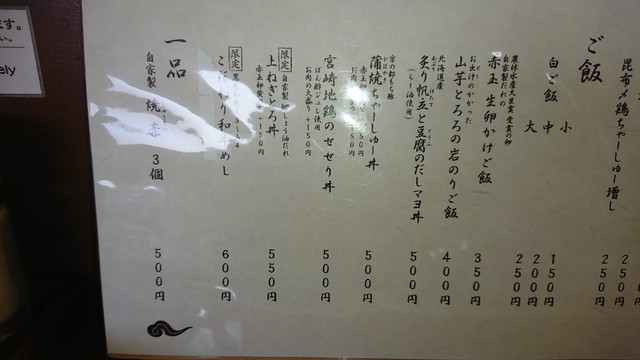 昆布〆鶏ちゃーしゅー増し
250円
ご飯
白ご飯
小
150円
中
200円
大
250円
農林水産大臣賞 受賞の卵
自家製だれの
赤玉 生卵かけご飯
350円
お出汁のかかった
山芋とろろの岩のりご飯
400円
北海道産
炙り帆立と豆腐のだしマヨ丼
(らー油使用)
500円
京の都もち豚
蒲焼ちゃーしゅー丼
500円
宮崎地鶏のせせり丼
ぽん酢ジュレ使用
お肉の大盛り +150円
500円
限定
自家製 しょう油だれ
上ねぎとろ丼
赤玉卵黄のせ +150円
550円
限定
600円
一品
自家製 焼
3個
500円
ます。
ely